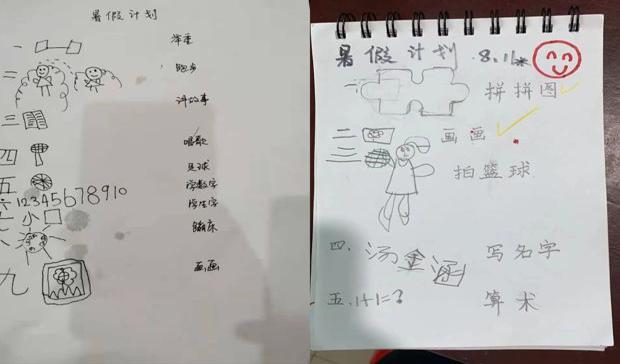 暑假计划
一
二 跑步
讲故事
三
四 唱歌
五 足球
六 12345678910 学数字
七 小口 学生字
八
九 画画
暑假计划 8.11
一 拼拼图
二 画画
三 拍篮球
四、汤金涵 写名字
五、1+1=? 算术